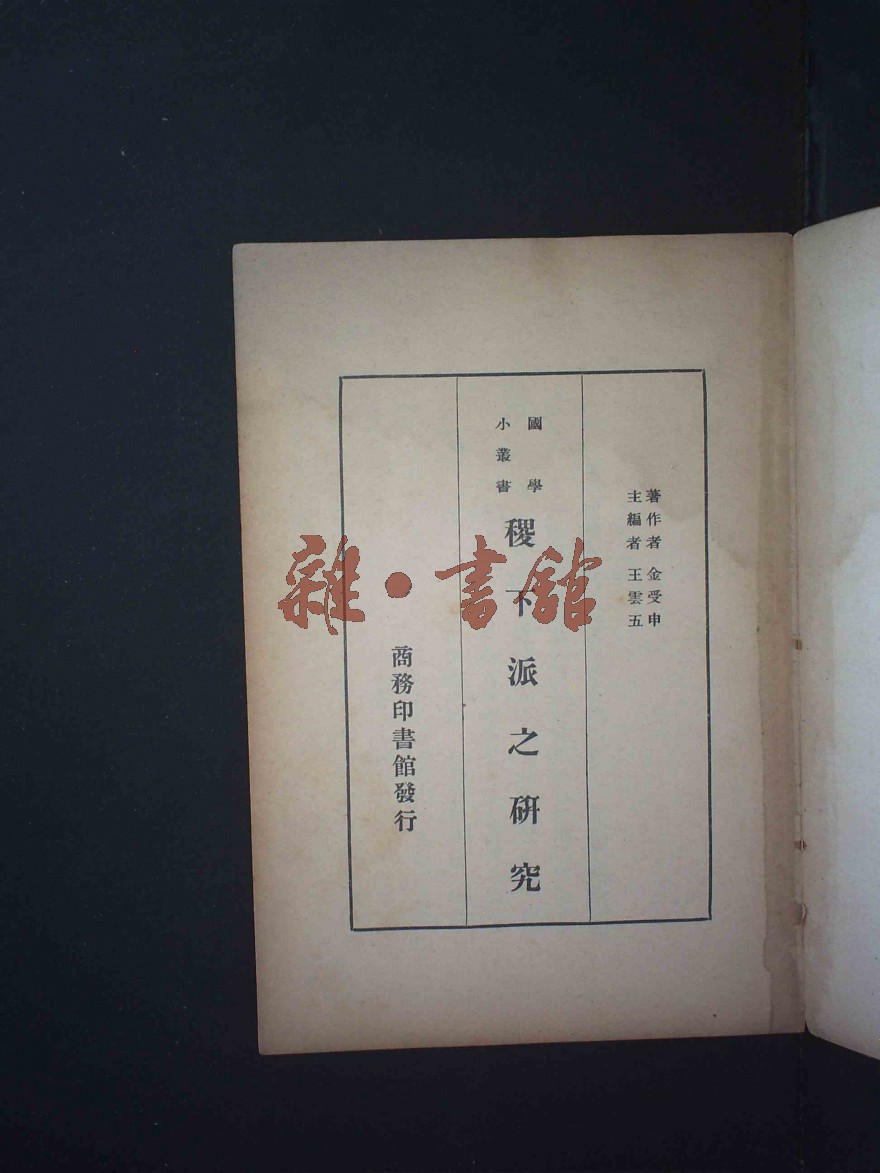 著作者 金受申
主編者 王雲五
國學
小叢書
稷下派之研究
商務印書館發行
雜·書館